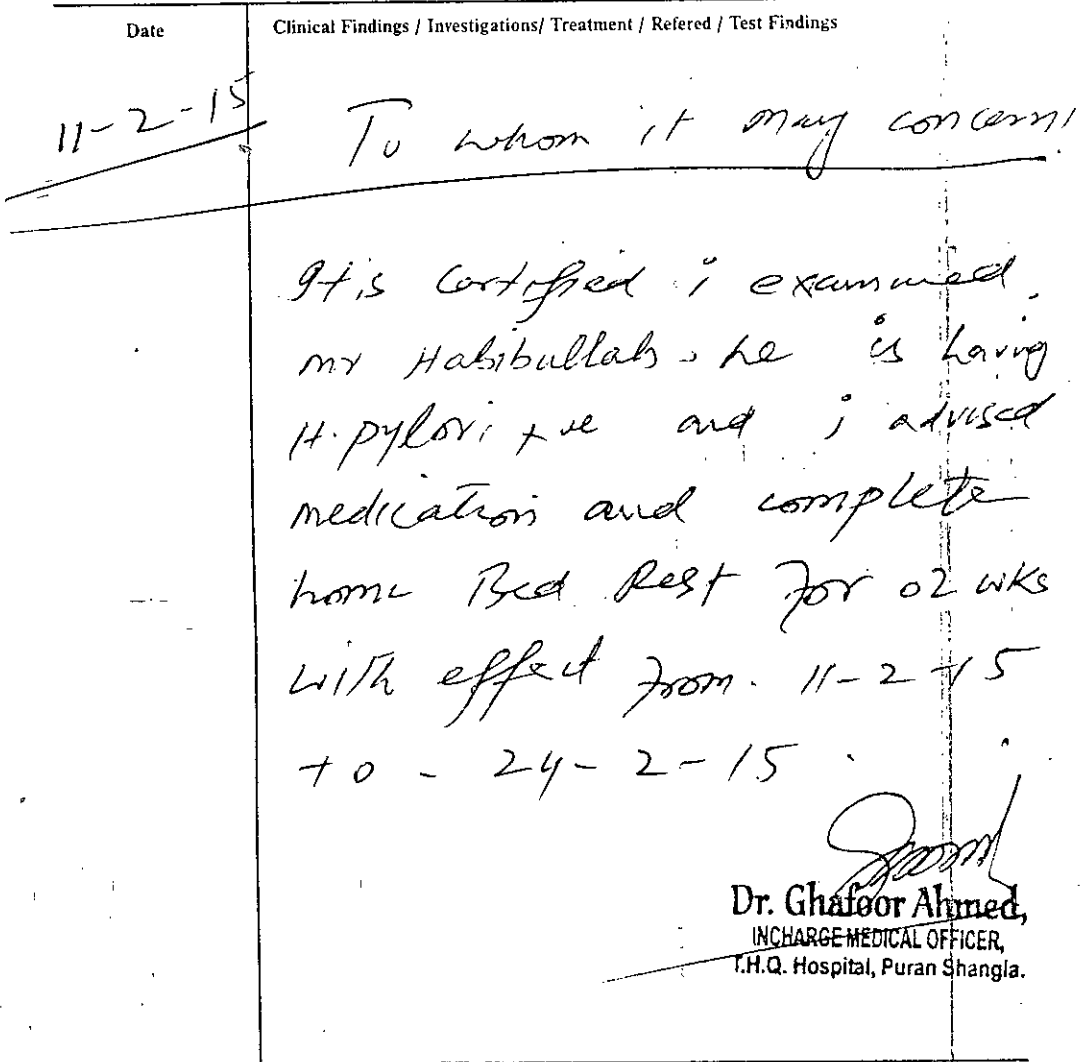 Date
Clinical Findings / Investigations/ Treatment / Refered / Test Findings
11-2-15
To whom it may concern
It is certified i examined
mr Habibullah. he is having
H. pylori +ve and i advised
medication and complete
home Bed Rest for 02 wks
with effect from. 11-2-15
to - 24-2-15.
Dr. Ghafoor Ahmed,
INCHARGE MEDICAL OFFICER,
T.H.Q. Hospital, Puran Shangla.